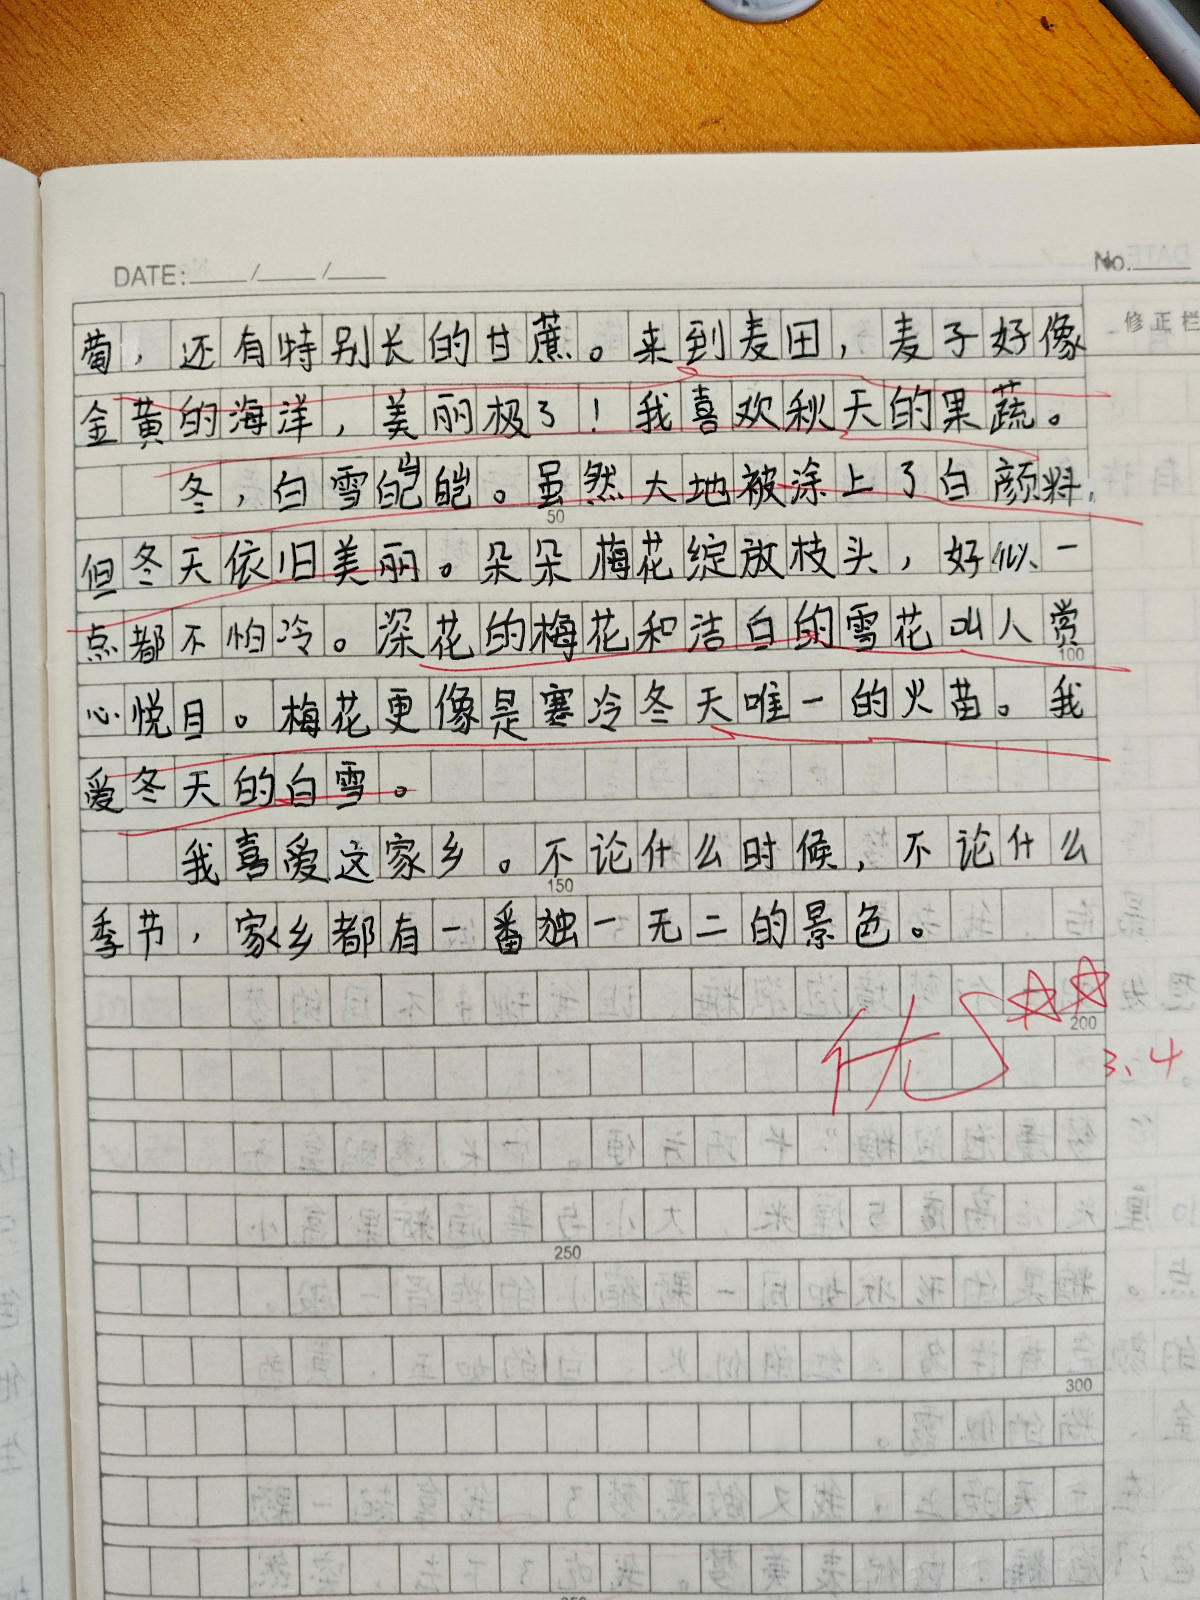 DATE: ____/____/____
No.____
修正栏
萄，还有特别长的甘蔗。来到麦田，麦子好像
金黄的海洋，美丽极了！我喜欢秋天的果蔬。
冬，白雪皑皑。虽然大地被涂上了白颜料，
50
但冬天依旧美丽。朵朵梅花绽放枝头，好似一
点都不怕冷。深花的梅花和洁白的雪花叫人赏
100
心悦目。梅花更像是寒冷冬天唯一的火苗。我
爱冬天的白雪。
我喜爱这家乡。不论什么时候，不论什么
150
季节，家乡都有一番独一无二的景色。
优
200
3、4
250
300